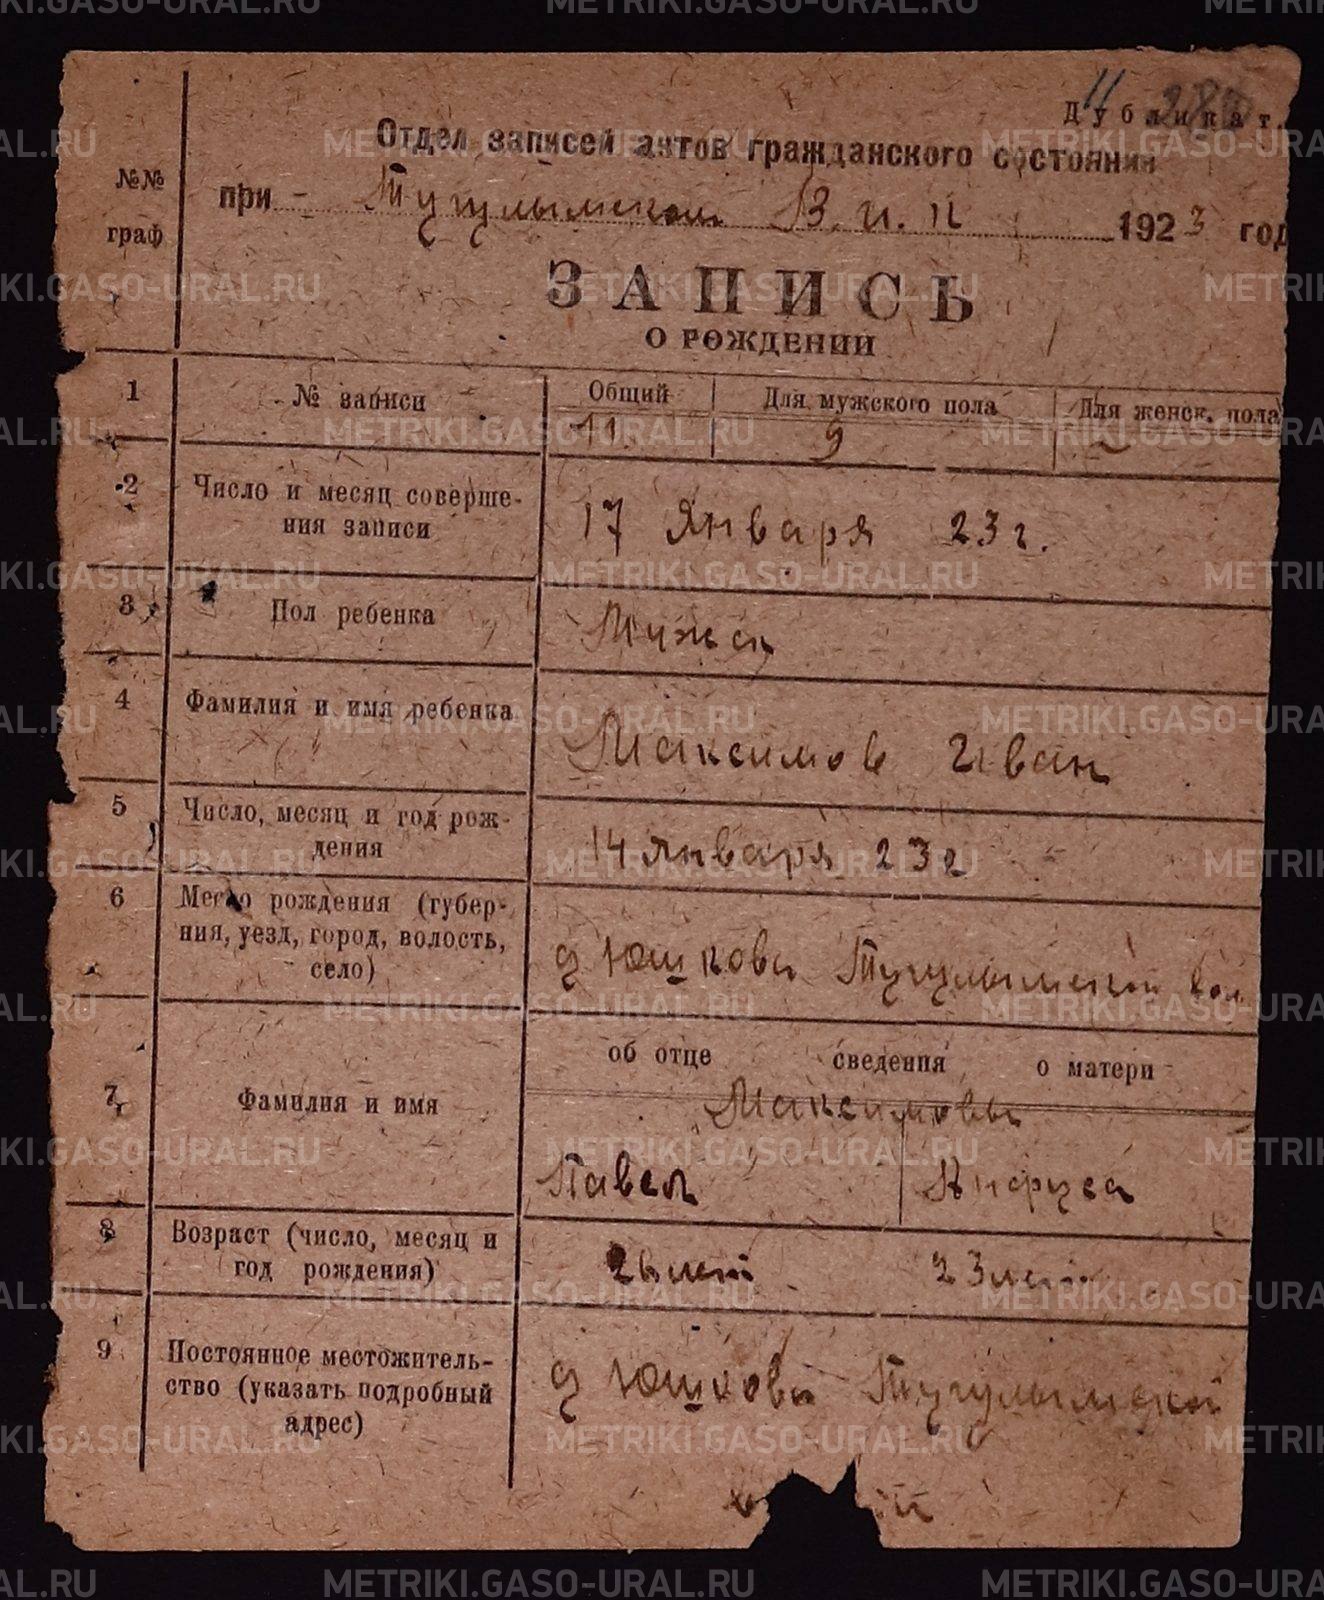 11
Дубликат.
Отдел записей актов гражданского состояния
при Тугулымском В. И. К 1923 год
№№ граф
ЗАПИСЬ
О РОЖДЕНИИ
1 № записи Общий Для мужского пола Для женск. пола
11. 9 –
2 Число и месяц соверше-
ния записи
17 Января 23 г.
3 Пол ребенка Мужск
4 Фамилия и имя ребенка
Максимов Иван
5 Число, месяц и год рож-
дения
14 января 23 г
6 Место рождения (губер-
ния, уезд, город, волость,
село)
д Юшкова Тугулымской вол
об отце сведения о матери
7 Фамилия и имя
Максимовы
Павел Анфуса
8 Возраст (число, месяц и
год рождения)
26 лет 23 лет
9 Постоянное местожитель-
ство (указать подробный
адрес)
д Юшкова Тугулымской
METRIKI.GASO-URAL.RU